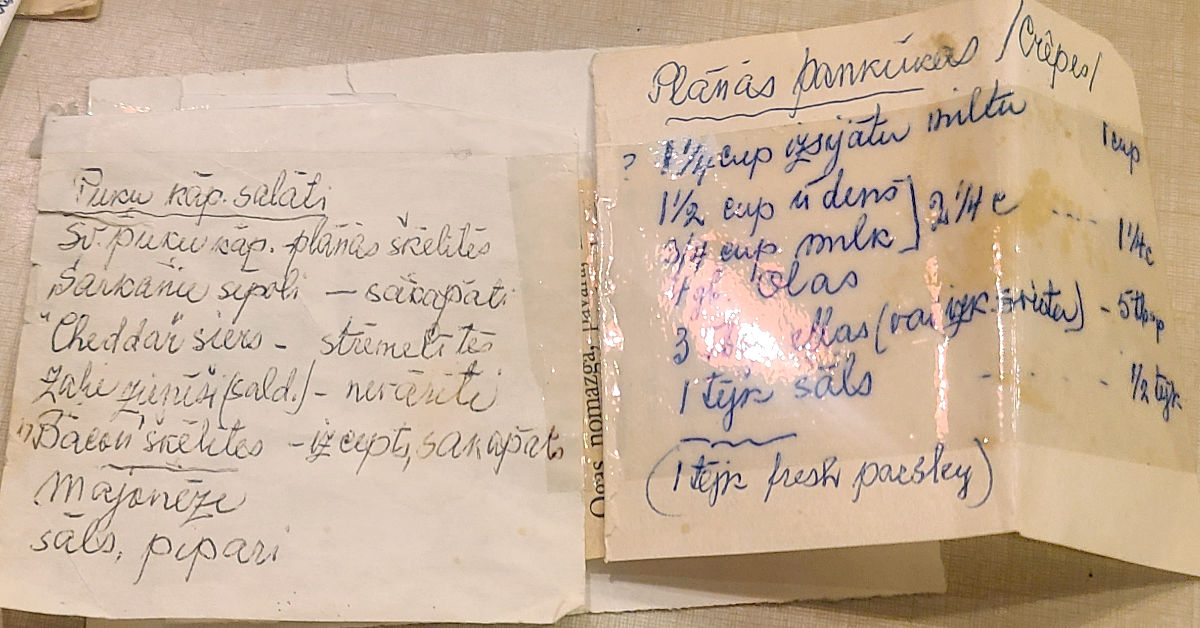 Puķu kāp. salāti
Sv. puķu kāp. plānās šķēlītēs
Sarkanie sīpoli — sakapāti
"Cheddar" siers - strēmelītēs
Zaļie zirnīši (sald.) - nevārīti
"Bacon" šķēlītes - izcepts, sakapāts
Majonēze
sāls, pipari
Ogas nomazgā,
Plānās pankūkas /Crêpes/
? 1 1/4 cup izsijātu miltu 1 cup
1 1/2 cup ūdens ] 2 1/4 c ---- 1 1/4 c
3/4 cup milk
4 gb olas
3 Tbsp eļļas (vai izk. sviestu) - 5 tbsp
1 tējk sāls - - - - - 1/2 tējk
(1 tējk fresh parsley)